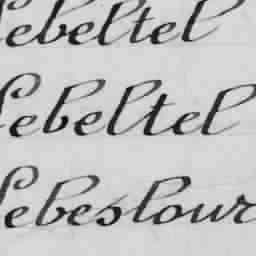 Lebeltel
Lebeltel
Lebeslour